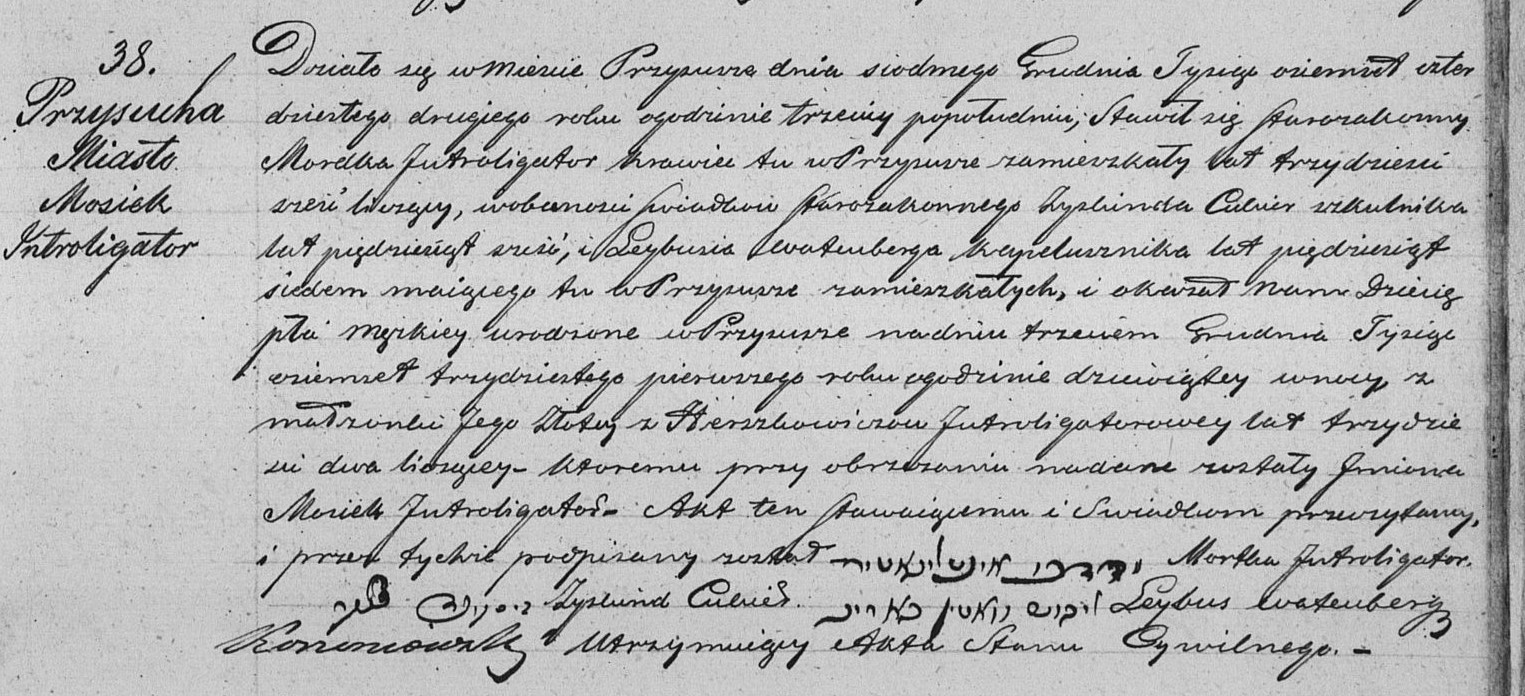 38.
Przysucha
Miasto
Mosiek
Introligator
Działo się w Mieście Przysusze dnia siodmego Grudnia Tysiąc osiemset czter
dziestego drugiego roku ogodzinie trzeciey popołudniu, Stawił się Starozakonny
Mordka Introligator krawiec tu w Przysusze zamieszkały lat trzydzieści
sześć liczący, wobecności Swiadków Starozakonnego Zyskinda Cukier szkulnika
lat pięćdziesiąt sześć, i Leybusia Watenberga kapelusznika lat pięćdziesiąt
siedem maiącego tu w Przysusze zamieszkałych, i okazał Nam Dziecię
płci męzkiey urodzone w Przysusze nadniu trzeciem Grudnia Tysiąc
osiemset trzydziestego pierwszego roku ogodzinie dziewiątey wnocy, z
małżonki Jego Złoty z Herszkowiczów Introligatorowey lat trzydzie
ści dwa liczącey – ktoremu przy obrzezaniu nadane zostały Jmiona
Mosiek Introligator – Akt ten stawaiącemu i Swiadkom przeczytany,
i przez tychże podpisany został מרדכי Mortka Introligator.
Zyskind Cukier. לייבוש Leybus Watenberg
Utrzymuiący Akta Stanu Cywilnego. –